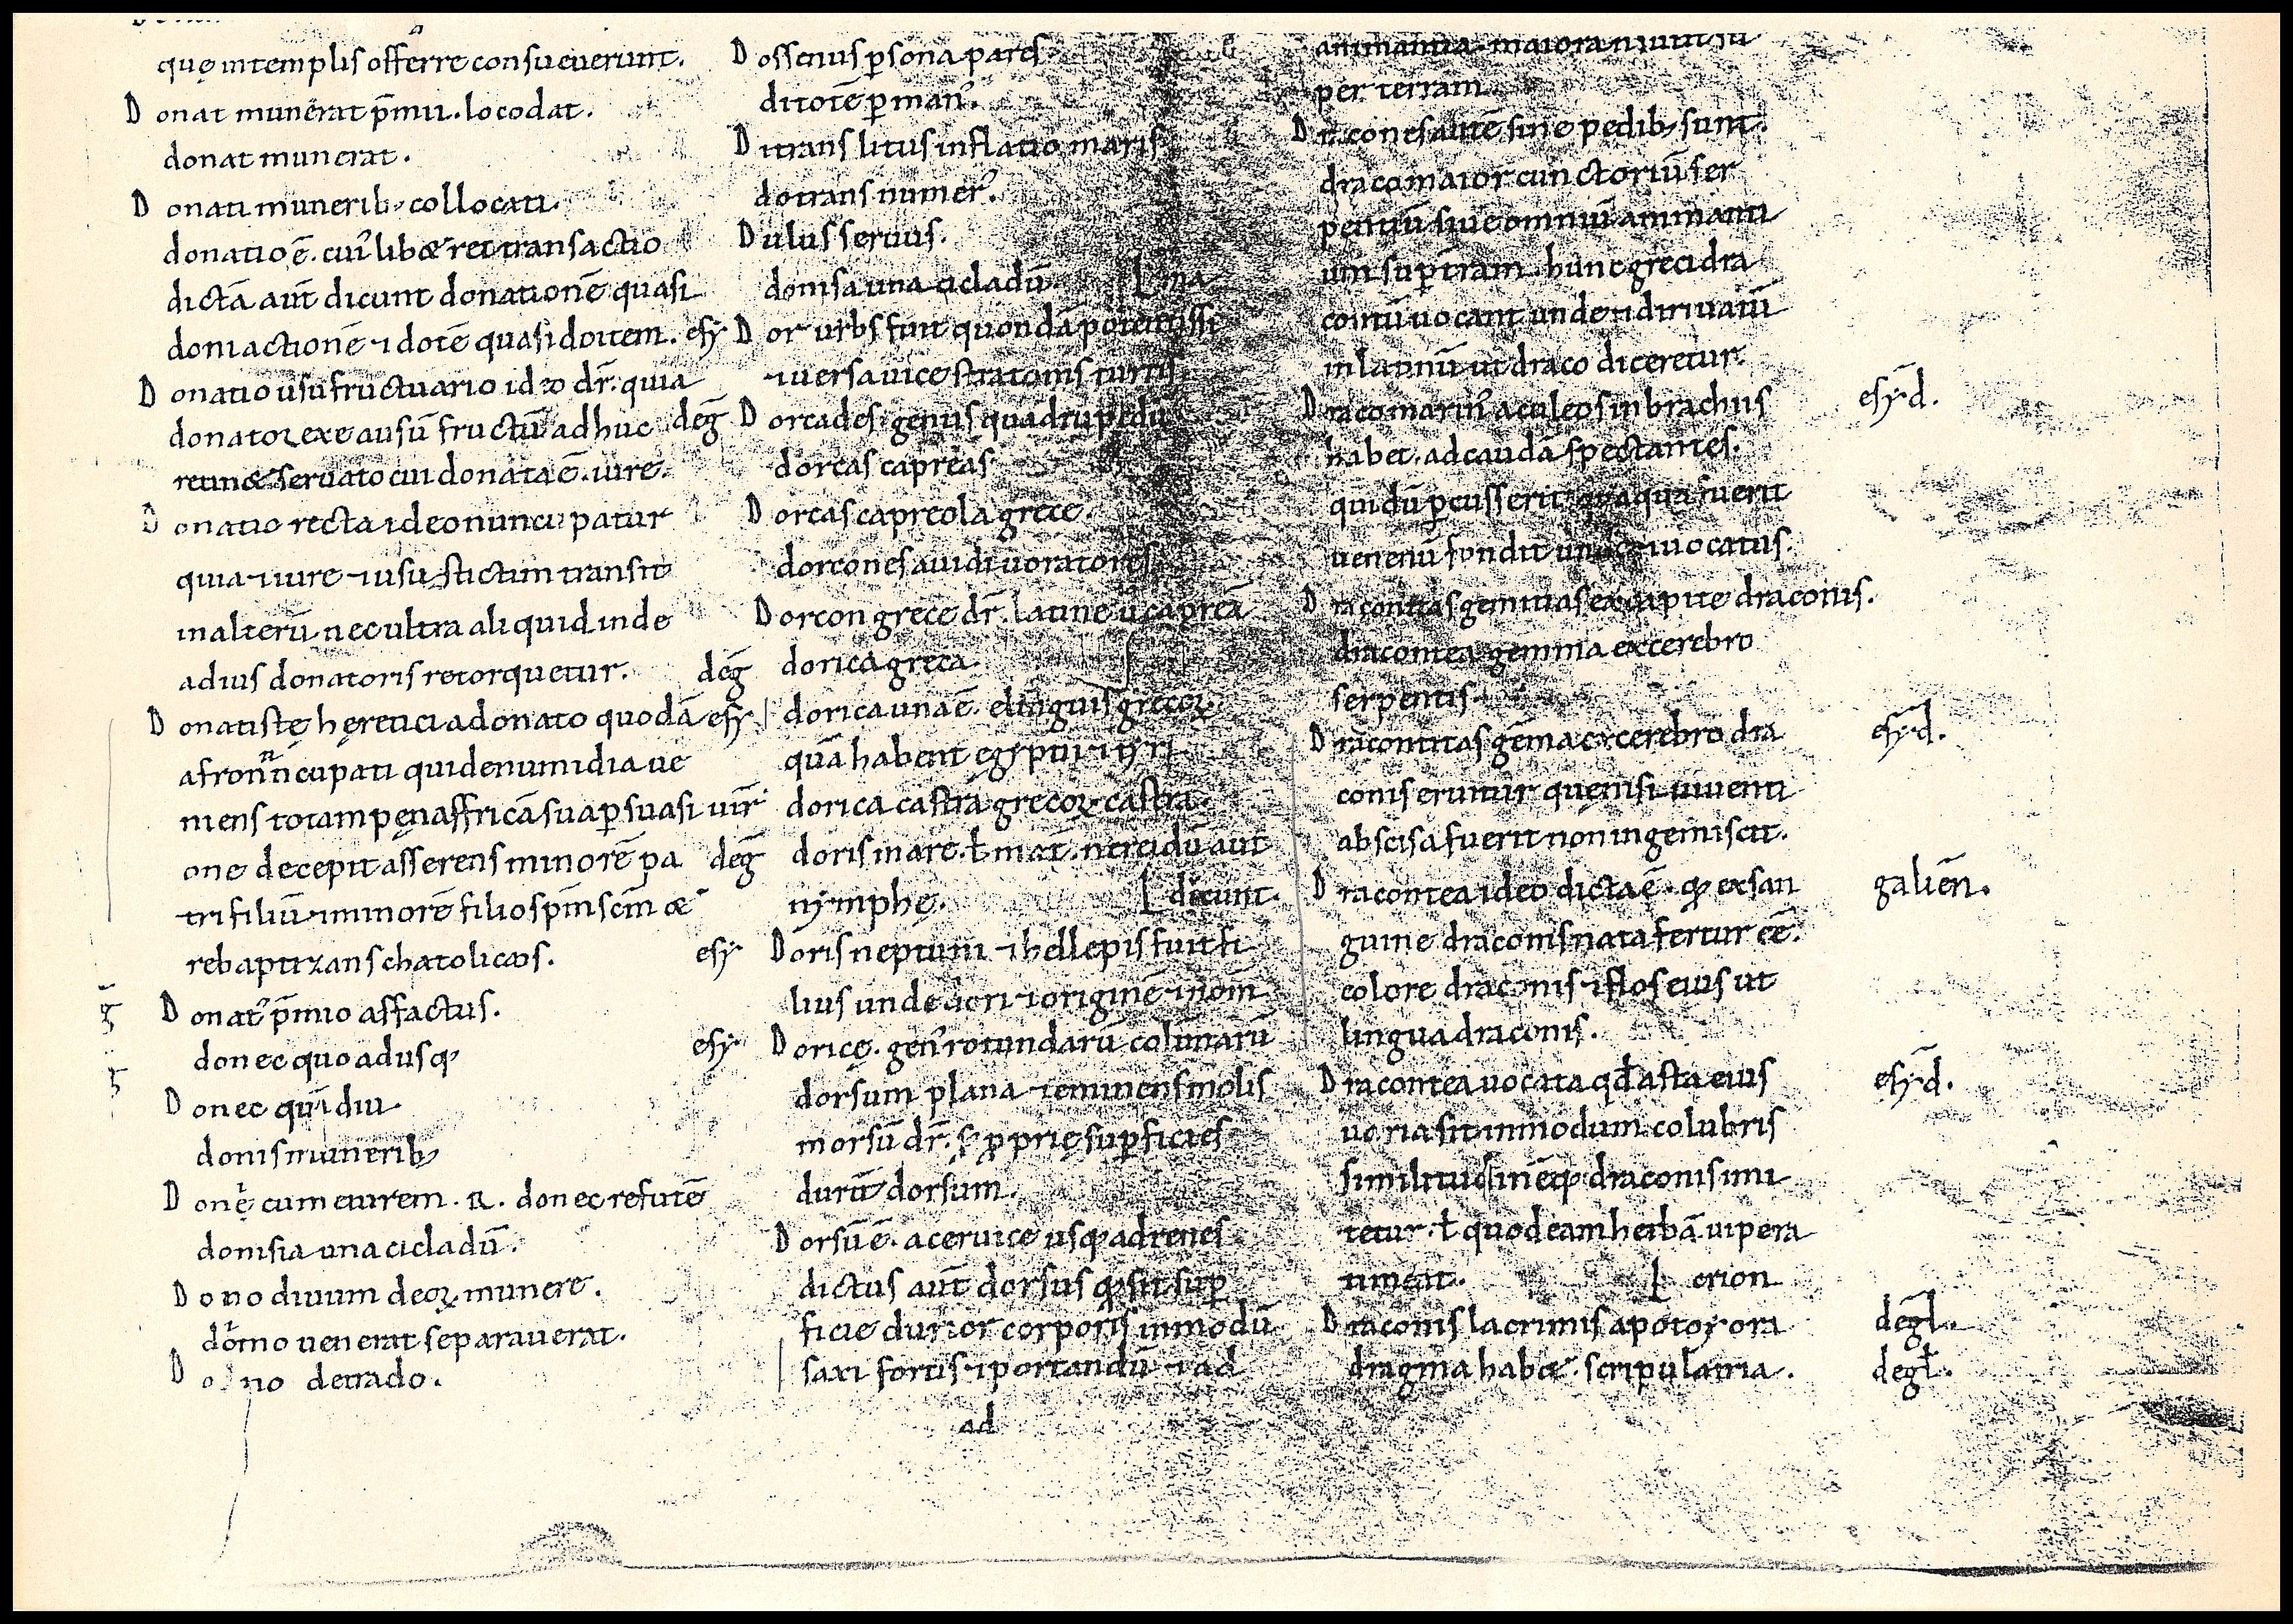 quę in templis offerre consueuerunt.
D onat munerat p̄miu. loco dat.
donat munerat.
D onati munerib; collocati.
donatio ē. cui᷒ libæ rei transactio
dictā aut̄ dicunt donationē quasi
doni actionē ⁊ dotē quasi do item.
D onatio usufructuario ideo dr̄. quia
donator ex ea usū fructū adhuc
retinæ seruato cui donata ē. iure.
D onatio recta ideo nuncupatur
quia ⁊ iure ⁊ usu stictim transit
in alterū. nec ultra aliquid inde
ad ius donatoris retorquetur.
D onatistę hęretici a donato quodā
afro nuncupati qui de numidia ue
niens totam penę affricā sua p̱suasi
one decepit asserens minorē pa
tri filiū ⁊ minorē filio sp̄m sc̄m æ
rebaptizans chatolicos.
D onat᷒ p̄mio affactus.
donec quo adusq;
D onec quādiu
donis munerib;
D onę cum eurem. R. donec refutē
donisia una cicladū.
D ono diuum deoꝝ munere.
domo uenerat separauerat.
D o no de trado.
D ossenus p̱sona pares
dito tē p̱ man᷒.
D itrans litus inflatio maris
dotrans numer᷒.
D ulus seruus.
donisa una cicladū. ma
esy D or urbs fuit quondā potentissi
⁊ uersa uice stratonis turris
deḡ D orcades. genus quadrupedū
dorcas capreas
D orcas capreola grece.
dorcones auidi uoratores
D orcon grece dr̄. latine ū caprea
deḡ dorica greca
esy dorica una ē. e linguis grecoꝝ
quā habent egyptii ⁊ syri
dorica castra grecoꝝ castra.
deḡ doris mare. ł mat̄. nereidū aut
nymphę. dicunt.
esy D oris neptuni ⁊ hellepis fuit fi
lius unde dori ⁊ originē ⁊ nom̄
esy D oricę. gen᷒ rotundarū colūnarū
dorsum plana ⁊ eminens molis
morsū dr̄. s; ꝓprię sup̱ficies
durū dorsum.
D orsū ē. a ceruice usq; ad renes
dictus aut̄ dorsus q; sit sup̱
ficie durior corporis in modū
saxi fortis ⁊ portandū ⁊ ad
ad
animantia. maiora
per terram
D racones autē sine pedib; sunt.
draco maior cunctoriū ser
pentiū siue omniū animanti
um sup̱ t̄ram. hunc greci dra
contū uocant unde ⁊ diriuatū
in latinū ut draco diceretur.
D raco marin᷒ aculeos in brachiis esȳd.
habet. ad caudā spectantes.
qui dū p̱cusserit quaqua fuerit
uenenū fundit unde uocatus.
D racontias gemmas ex capite draconis.
dracontea gemma ex cerebro
serpentis.
D racontitas gēma ex cerebro dra esȳd.
conis eruitur quę nisi uiuenti
abscisa fuerit non ingemiscit.
D racontea ideo dicta ē. q; ex san galiēn.
guine draconis nata fertur ēē.
colore draconis ⁊ flos eius ut
lingua draconis.
D racontea uocata qđ asta eius esȳd.
uaria sit in modum colubris
similitudinēq; draconis imi
tetur. ł quod eam herbā uipera
timeat. orion
D raconis lacrimis apotoy ori deḡl.
dragma habæ. scripula tria. degł.